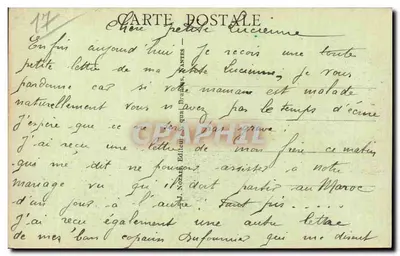 17
CARTE POSTALE
Chère petite Lucienne
Enfin aujourd'hui je reçois une toute
petite lettre de ma petite Lucienne, je vous
pardonne car si votre maman est malade
naturellement vous n'avez pas le temps d'écrire
J'espère que ce ne sera pas grave.
J'ai reçu une lettre de mon frère ce matin
qui me dit ne pouvoir assister à notre
mariage vu qu'il doit partir au Maroc
d'un jour à l'autre. Tant pis....
J'ai reçu également une autre lettre
de mes bon copain qui me disent
CPARAMA
NANTES